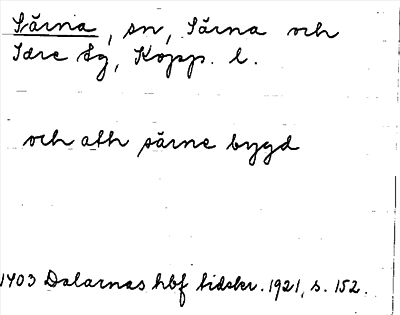 Särna, sn, Särna och
Idre tg, Kopp. l.
och ath särne bygd
1403 Dalarnas hbf tidskr. 1921, s. 152.